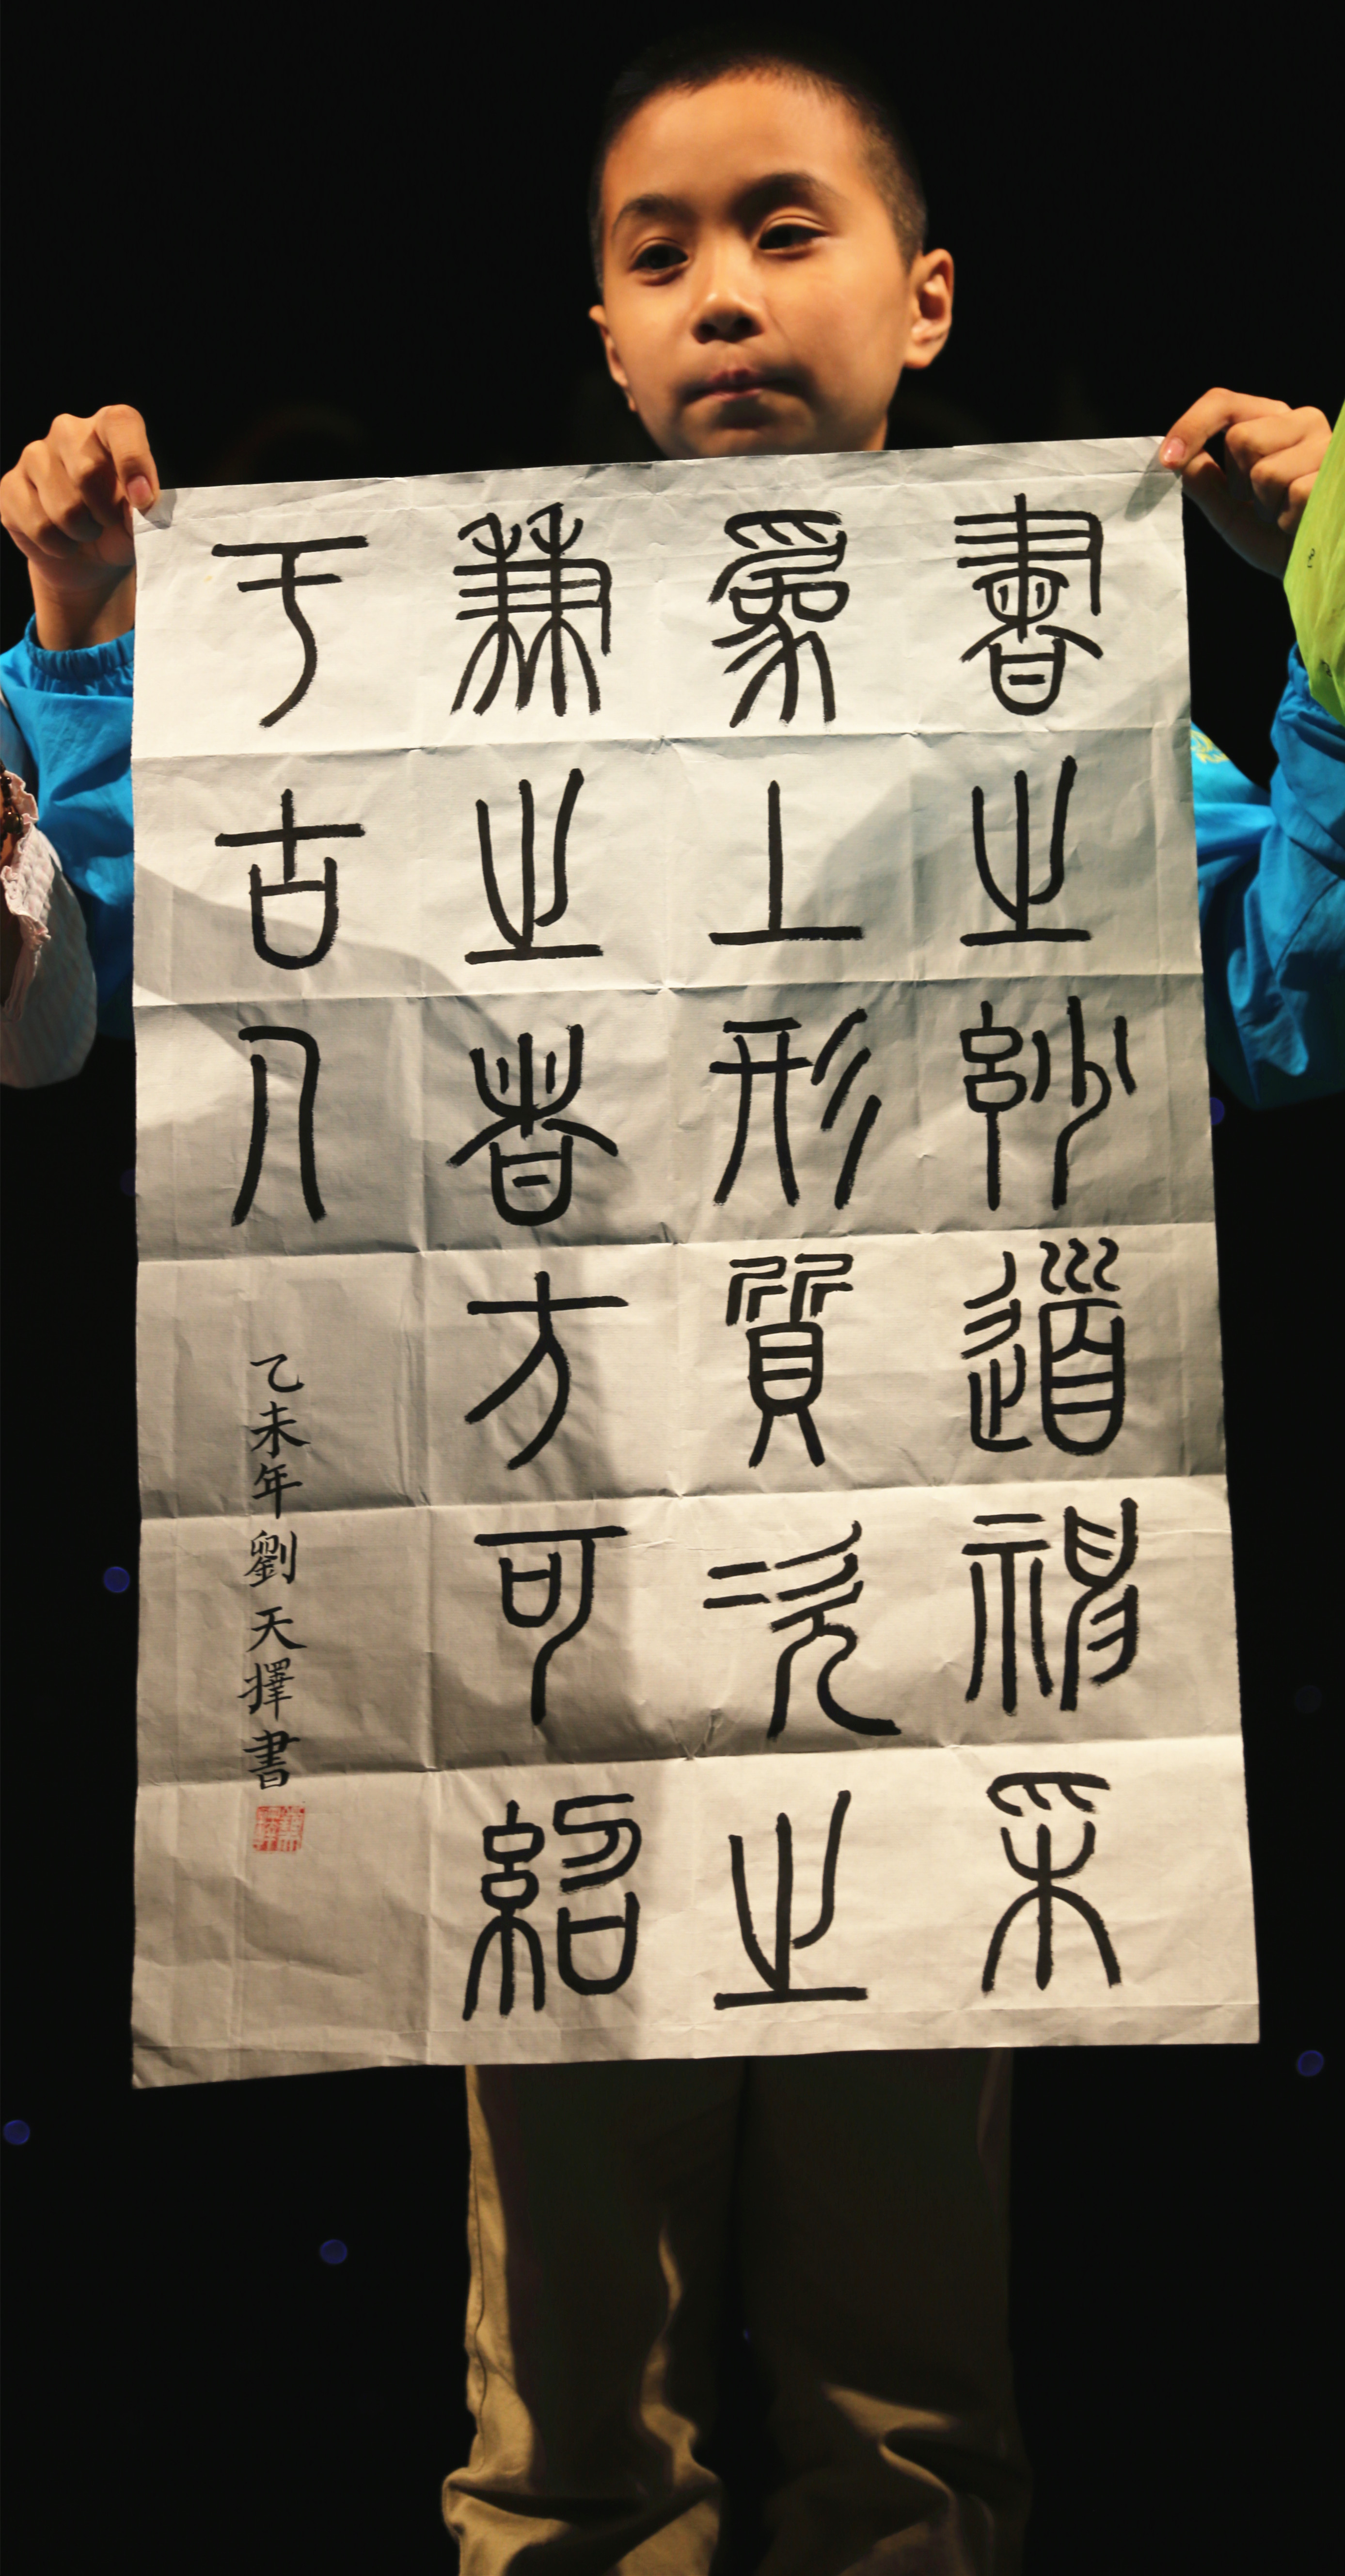 書之玅道神采
爲上形質次之
兼之者方可紹
于古人
乙未年劉天擇書